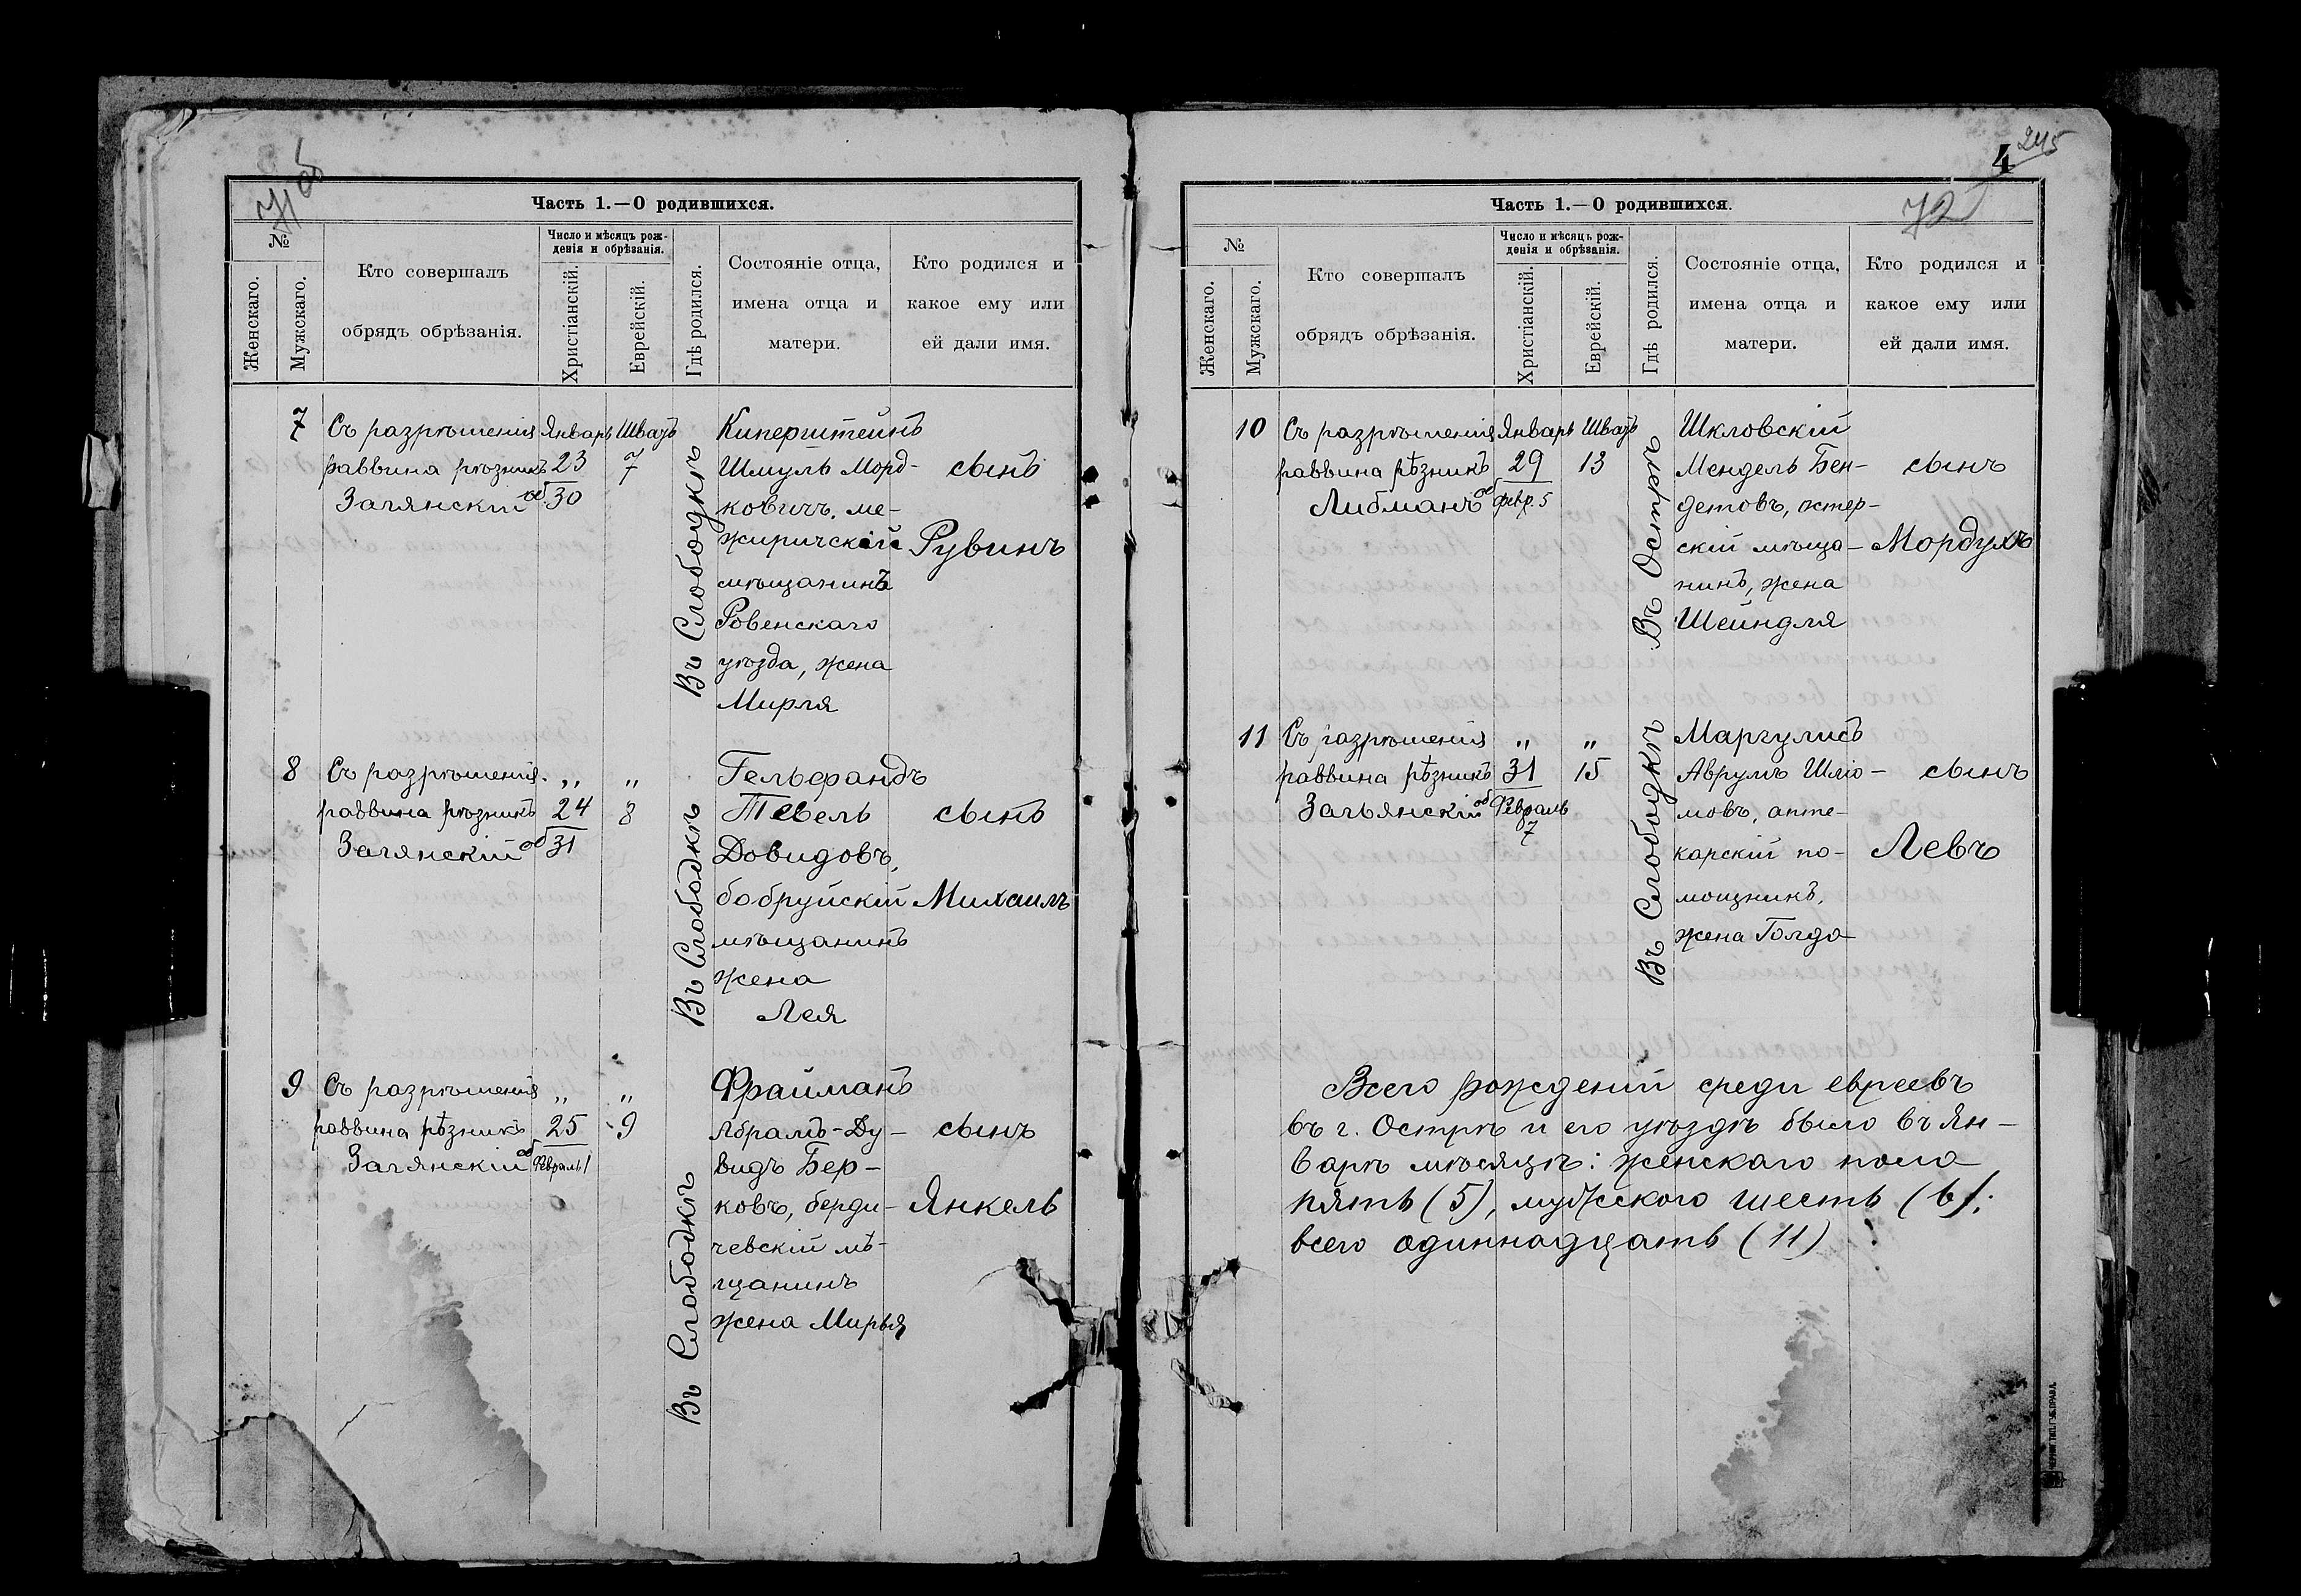 71 об
Часть 1.—О родившихся.
№
Женскаго.
Мужскаго.
Кто совершалъ
обрядъ обрѣзанія.
Число и мѣсяцъ рож-
денія и обрѣзанія.
Христіанскій.
Еврейскій.
Гдѣ родился.
Состояніе отца,
имена отца и
матери.
Кто родился и
какое ему или
ей дали имя.
7 Съ разрѣшенія Январь Шватъ Киперштейнъ
раввина рѣзникъ 23 7 Шмуль Морд- сынъ
Загянскій об 30 ковичъ, ме-
жиричскій Рувинъ
мѣщанинъ
Ровенскаго
уѣзда, жена
Мирля
Въ Слободкѣ
8 Съ разрѣшенія „ „ Гельфандъ
раввина рѣзникъ 24 8 Тевель сынъ
Загянскій об 31 Довидовъ,
бобруйскій Михаилъ
мѣщанинъ
жена
Лея
Въ Слободкѣ
9 Съ разрѣшенія „ „ Фрайманъ
раввина рѣзникъ 25 9 Абрамъ-Ду- сынъ
Загянскій об Февраль 1 видъ Бер-
ковъ, берди- Янкель
чевскій мѣ-
щанинъ
жена Мирья
Въ Слободкѣ
4 245
72
Часть 1.—О родившихся.
№
Женскаго.
Мужскаго.
Кто совершалъ
обрядъ обрѣзанія.
Число и мѣсяцъ рож-
денія и обрѣзанія.
Христіанскій.
Еврейскій.
Гдѣ родился.
Состояніе отца,
имена отца и
матери.
Кто родился и
какое ему или
ей дали имя.
10 Съ разрѣшенія Январь Шватъ Шкловскій
раввина рѣзникъ 29 13 Мендель Бен- сынъ
Либманъ об февр. 5 детовъ, остер-
скій мѣща- Мордухъ
нинъ, жена
Шейндля
Въ Острѣ
11 Съ разрѣшенія „ „ Маргулисъ
раввина рѣзникъ 31 15 Аврумъ Шлио- сынъ
Загьянскій об Февраль 7 мовъ, апте-
карскій по- Левъ
мощникъ,
жена Голда
Въ Слободкѣ
Всего рожденій среди евреевъ
въ г. Острѣ и его уѣздѣ было въ Ян-
варѣ мѣсяцѣ: женскаго пола
пять (5), мужского шесть (6);
всего одиннадцать (11)